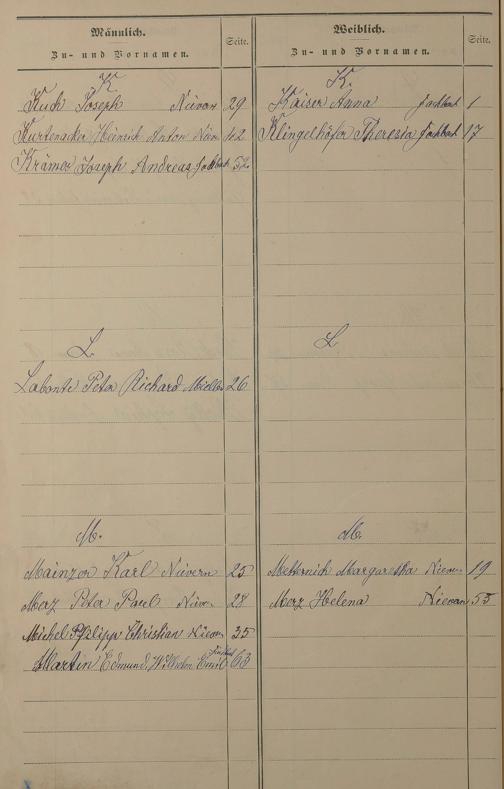 Männlich.
Seite.
Zu- und Vornamen.
K
Kuch Joseph Nievern 29
Kurtenacker Heinrich Anton Niev. 42
Krämer Joseph Andreas Fachbach 52
L
Labonte Peter Richard Miellen 26
M.
Mainzer Karl Nievern 25
Merz Peter Paul Niev. 28
Michel Philipp Christian Nievern 35
Fachbach
Martin Edmund Wilhelm Emil 63
Weiblich.
Seite.
Zu- und Vornamen.
K.
Kaiser Anna Fachbach 1
Klingelhöfer Theresia Fachbach 17
L
M.
Metternich Margaretha Nievern 19
Merz Helena Nievern 55